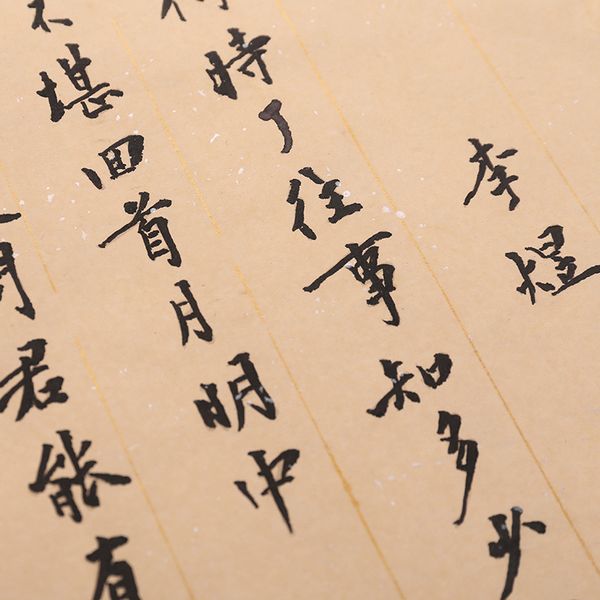 李煜
何時了往事知多少
不堪回首月明中
問君能有